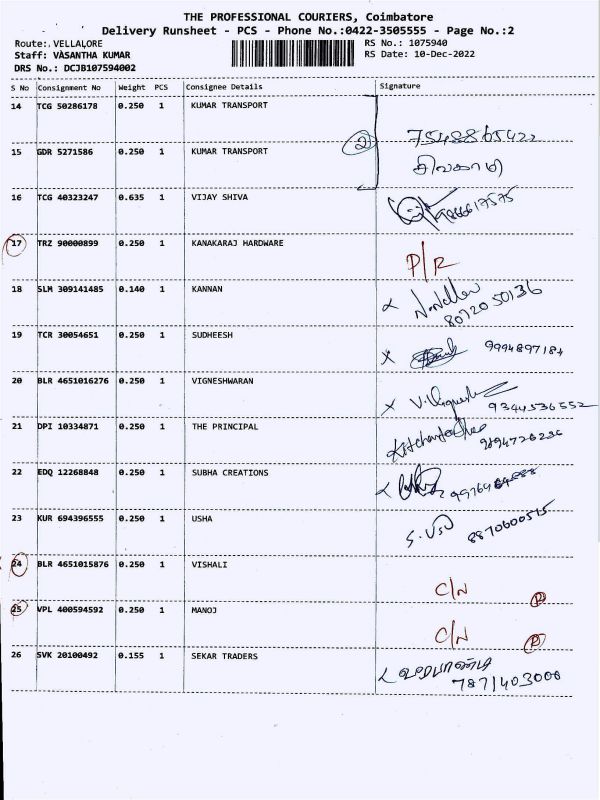 THE PROFESSIONAL COURIERS, Coimbatore
Delivery Runsheet - PCS - Phone No.:0422-3505555 - Page No.:2
Route: VELLALORE
RS No.: 1075940
Staff: VASANTHA KUMAR
RS Date: 10-Dec-2022
DRS No.: DCJB107594002
S No Consignment No Weight PCS Consignee Details Signature
14 TCG 50286178 0.250 1 KUMAR TRANSPORT
② 7548865422
15 GDR 5271586 0.250 1 KUMAR TRANSPORT
சிவகாமி
16 TCG 40323247 0.635 1 VIJAY SHIVA
17 TRZ 90000899 0.250 1 KANAKARAJ HARDWARE
P/R
18 SLM 309141485 0.140 1 KANNAN
8072050136
19 TCR 30054651 0.250 1 SUDHEESH
X
20 BLR 4651016276 0.250 1 VIGNESHWARAN
X V.Vignesh 9344536552
21 DPI 10334871 0.250 1 THE PRINCIPAL
22 EDQ 12268848 0.250 1 SUBHA CREATIONS
23 KUR 694396555 0.250 1 USHA
8870600515
24 BLR 4651015876 0.250 1 VISHALI
C/N
25 VPL 400594592 0.250 1 MANOJ
C/N
26 SVK 20100492 0.155 1 SEKAR TRADERS
7871403000